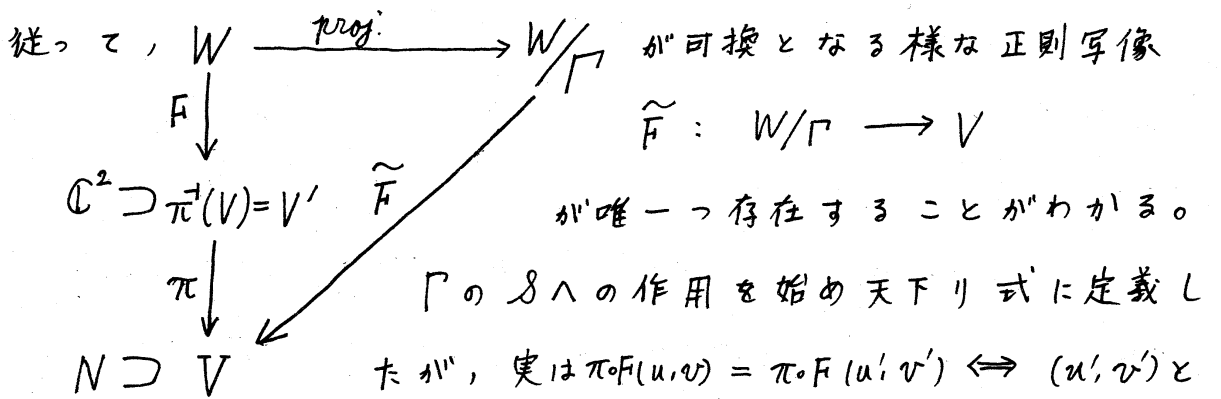 従って, W proj. W/Γ が可換となる様な正則写像
F F̃ : W/Γ ⟶ V
ℂ² ⊃ π⁻¹(V) = V' F̃ が唯一つ存在することがわかる。
π Γの𝒮への作用を始め天下り式に定義し
N ⊃ V たが, 実はπ∘F(u,v) = π∘F(u',v') ⟺ (u',v')と